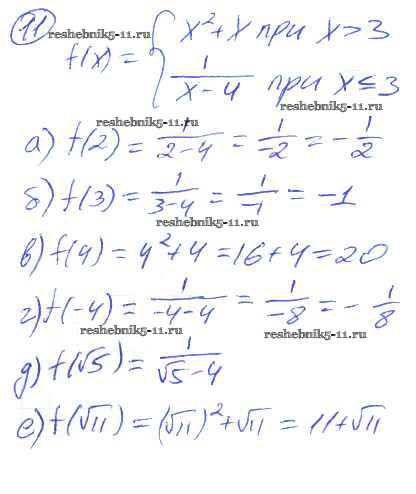 11 reshebnik5-11.ru
f(x) = { x² + x при x > 3
1/(x-4) при x ≤ 3
reshebnik5-11.ru
а) f(2) = 1/(2-4) = 1/-2 = -1/2
reshebnik5-11.ru
б) f(3) = 1/(3-4) = 1/-1 = -1
reshebnik5-11.ru
в) f(4) = 4² + 4 = 16 + 4 = 20
г) f(-4) = 1/(-4-4) = 1/-8 = -1/8
reshebnik5-11.ru
reshebnik5-11.ru
д) f(√5) = 1/(√5-4)
е) f(√11) = (√11)² + √11 = 11 + √11